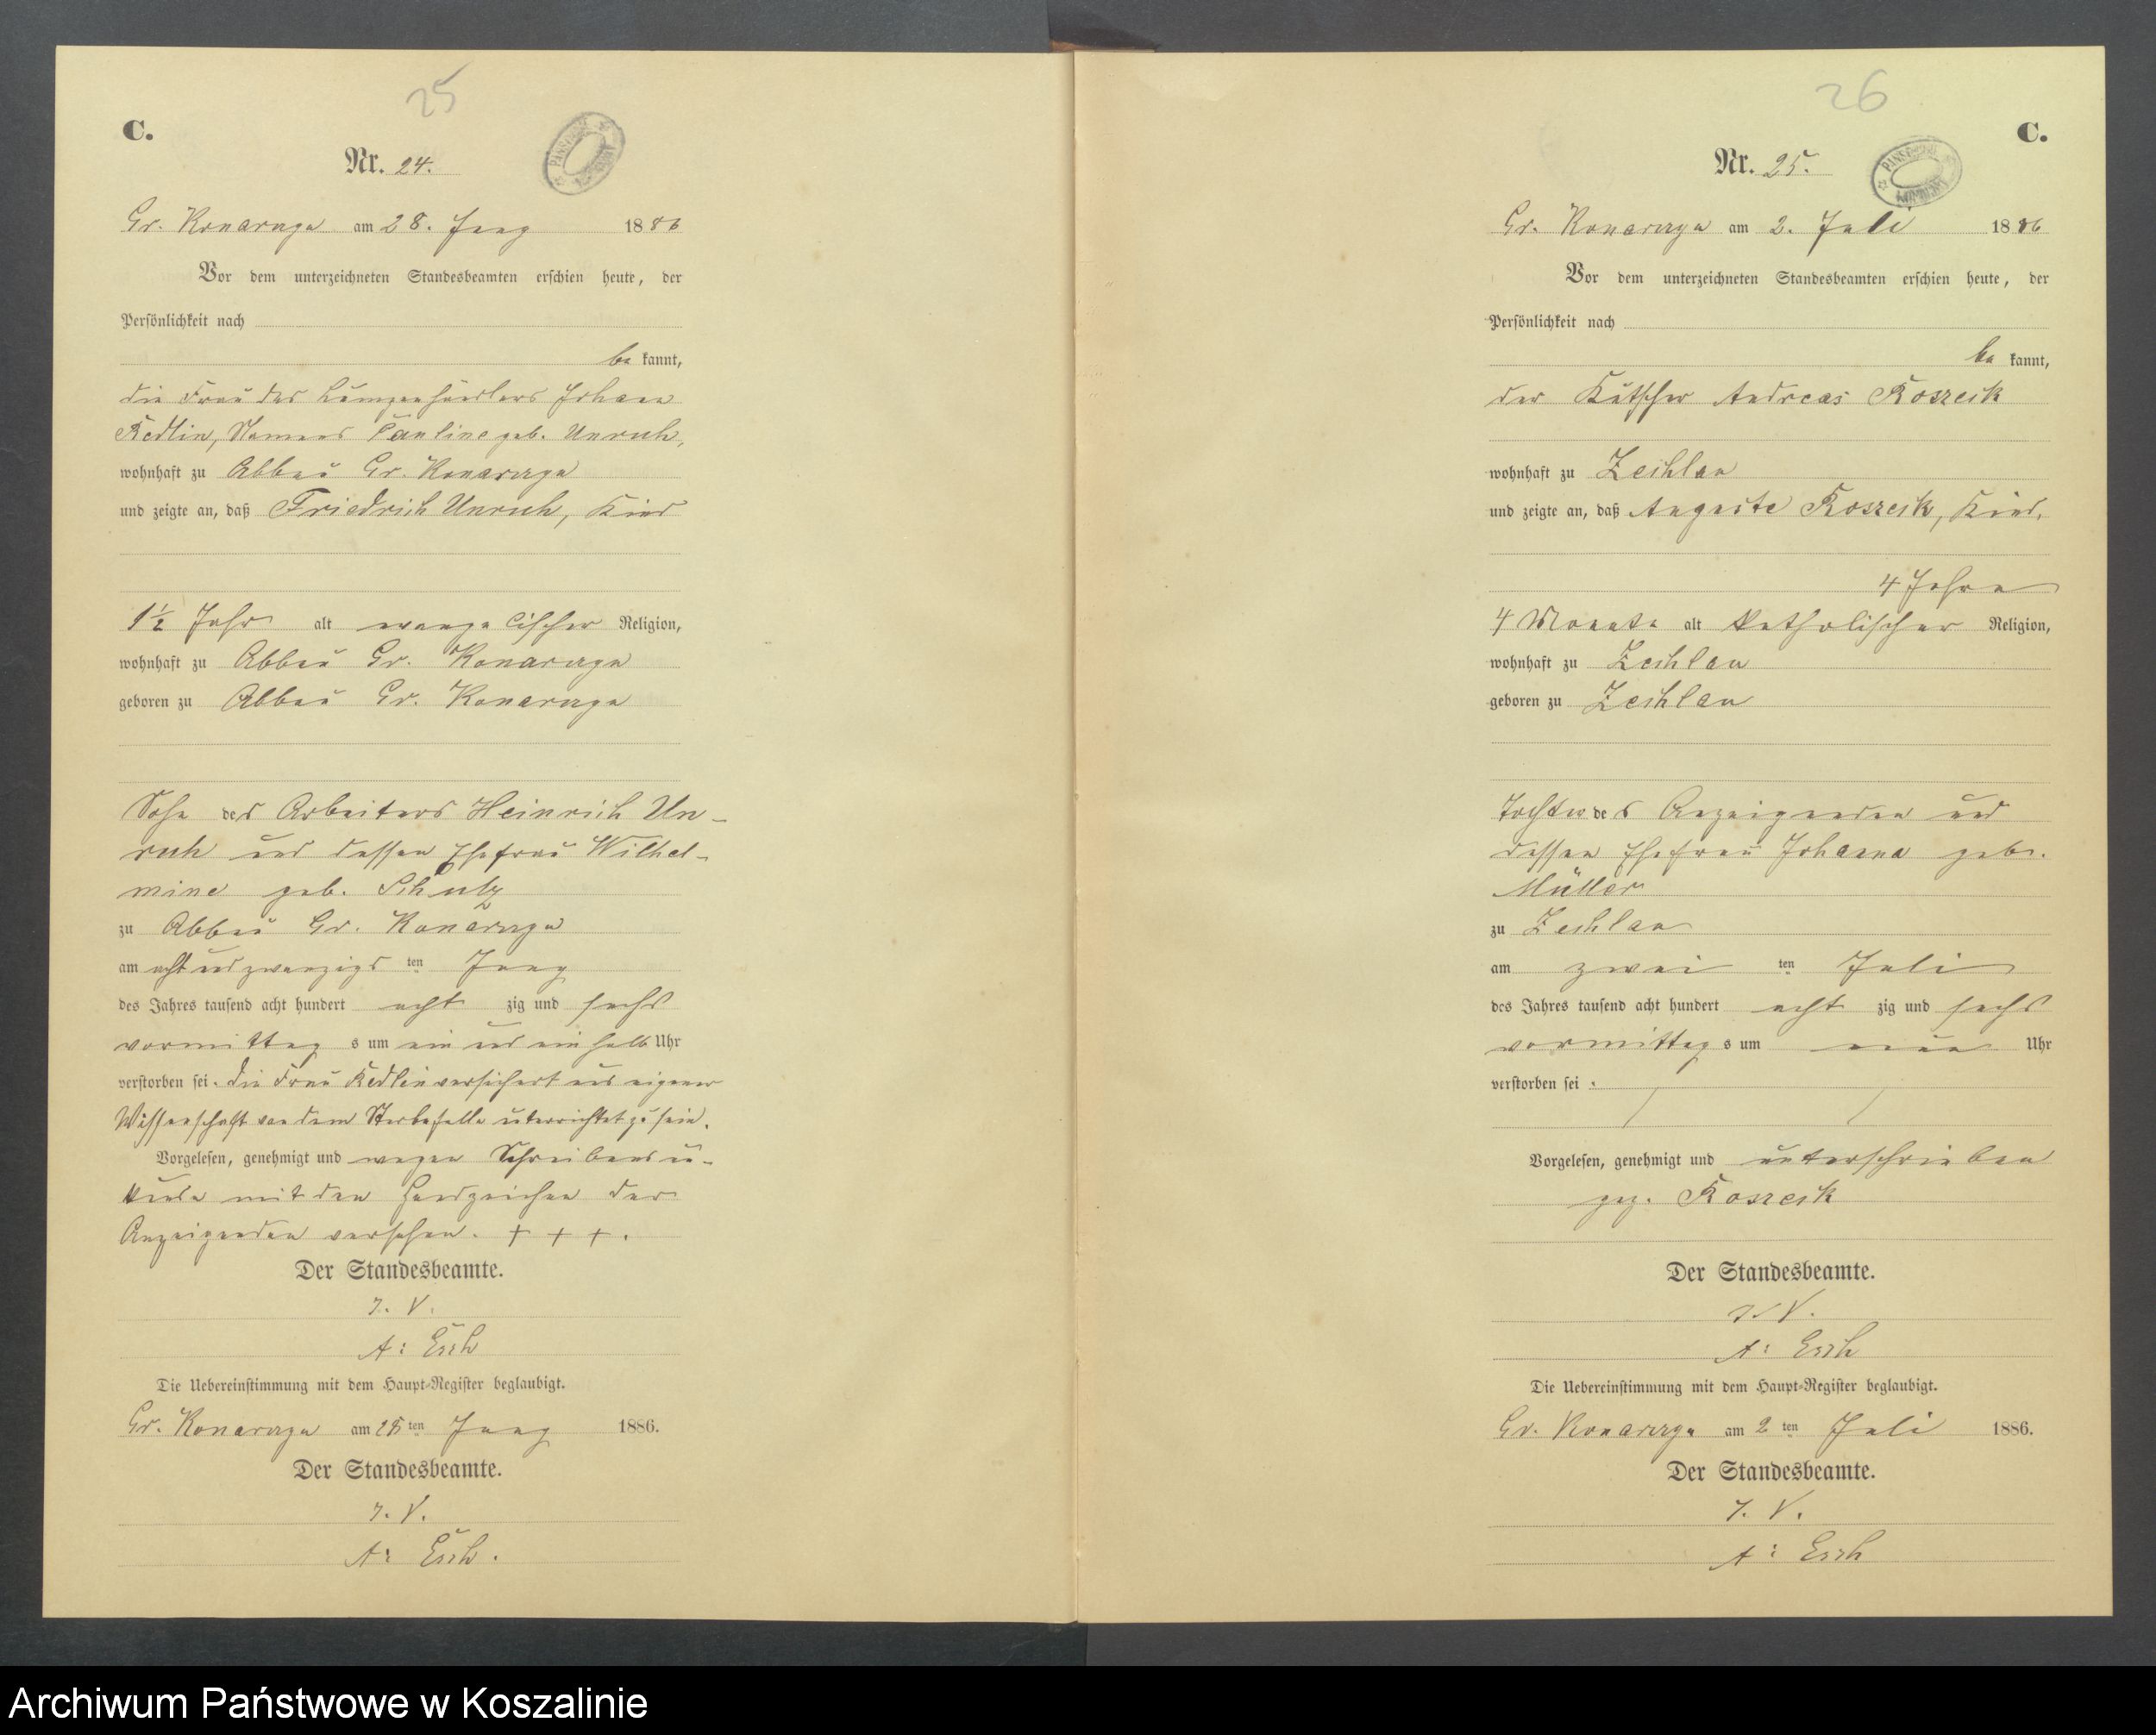 25
C.
Nr. 24.
Gr. Konarczyn am 28. Juny 1886
Vor dem unterzeichneten Standesbeamten erschien heute, der
Persönlichkeit nach
be kannt,
die Frau des Lumpenhändlers Johann
Redlin, Namens Pauline geb. Unruh,
wohnhaft zu Abbau Gr. Konarczyn
und zeigte an, daß Friedrich Unruh, Kind
1½ Jahr alt evangelischer Religion,
wohnhaft zu Abbau Gr. Konarczyn
geboren zu Abbau Gr. Konarczyn
Sohn des Arbeiters Heinrich Un-
ruh und dessen Ehefrau Wilhel-
mine geb. Schulz
zu Abbau Gr. Konarczyn
am acht und zwanzigs ten Juny
des Jahres tausend acht hundert acht zig und sechs
vormittag s um ein und ein halb Uhr
verstorben sei. die Frau Redlin versichert aus eigener
Wissenschaft von dem Sterbefalle unterrichtet zu sein.
Vorgelesen, genehmigt und wegen Schreibensun-
kunde mit den Handzeichen der
Anzeigenden versehen. + + +.
Der Standesbeamte.
I. V.
A: Esch
Die Uebereinstimmung mit dem Haupt-Register beglaubigt.
Gr. Konarczyn am 28 ten Juny 1886.
Der Standesbeamte.
I. V.
A: Esch.
26
C.
Nr. 25.
Gr. Konarczyn am 2. Juli 1886
Vor dem unterzeichneten Standesbeamten erschien heute, der
Persönlichkeit nach
be kannt,
der Kutscher Andreas Koszeik
wohnhaft zu Zechlau
und zeigte an, daß Auguste Koszeik, Kind,
4 Jahre
4 Monate alt katholischer Religion,
wohnhaft zu Zechlau
geboren zu Zechlau
Tochter des Anzeigenden und
dessen Ehefrau Johanna geb.
Müller
zu Zechlau
am zwei ten Juli
des Jahres tausend acht hundert acht zig und sechs
vormittag s um neun Uhr
verstorben sei.
Vorgelesen, genehmigt und unterschrieben
gez. Koszeik
Der Standesbeamte.
I. V.
A: Esch
Die Uebereinstimmung mit dem Haupt-Register beglaubigt.
Gr. Konarczyn am 2 ten Juli 1886.
Der Standesbeamte.
I. V.
A: Esch
Archiwum Państwowe w Koszalinie